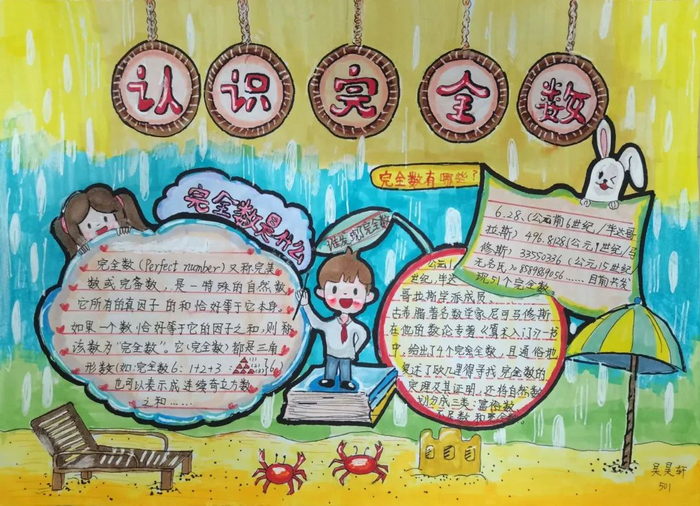 认识完全数
完全数是什么
完全数(Perfect number)又称完美
数或完备数,是一特殊的自然数
它所有的真因子的和恰好等于它本身。
如果一个数恰好等于它的因子之和,则称
该数为“完全数”。它(完全数)都是三角
形数(如:完全数6:1+2+3
也可以表示成连续奇立方数
之和……
谁发现了完全数
世纪,毕达
哥拉斯学派成员
古希腊著名数学家尼可马修斯
在他的数论专著《算术入门》一书
中,给出了4个完全数,且通俗地
复述了欧几里得寻找完全数的
定理及其证明,还将自然数
划分成三类:富裕数
完全数有哪些?
6.28.(公元前6世纪/毕达哥
拉斯)496.8128(公元1世纪/马
修斯)33550336(公元15世纪/
无名氏)8589869056……目前书发
现51个完全数。
吴昊轩
501